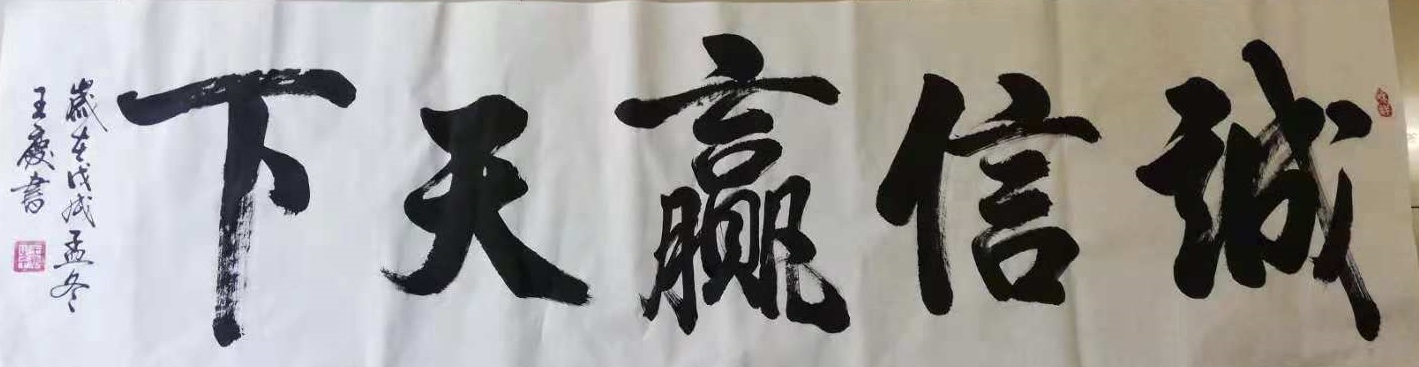 誠信贏天下
歲在戊戌孟冬
王慶書